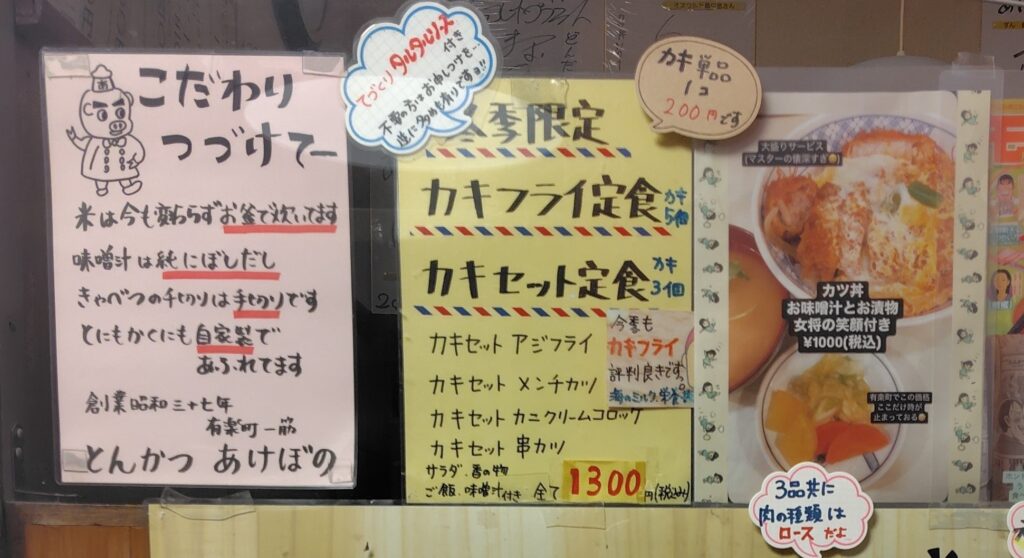 こだわり
つづけてー
米は今も変わらずお釜で炊いてます
味噌汁は純にぼしだし
きゃべつの千切りは手切りです
とにもかくにも自家製で
あふれてます
創業昭和三十七年
有楽町一筋
とんかつ あけぼの
てづくりタルタルソース付き
不要の方はお申しつけを…
逆に多めも有りですョ!!
冬季限定
カキフライ定食
カキ
5個
カキセット定食
カキ
3個
カキセット アジフライ
カキセット メンチカツ
カキセット カニクリームコロッケ
カキセット 串カツ
サラダ、香の物
ご飯、味噌汁付き 全て 1300円(税込み)
今季も
カキフライ
評判良きです。
海のミルク
カキ単品
1コ
200円です
大盛りサービス
(マスターの懐深すぎ
カツ丼
お味噌汁とお漬物
女将の笑顔付き
¥1000(税込)
有楽町でこの価格
ここだけ時が
止まっておる
3品共に
肉の種類は
ロースだよ